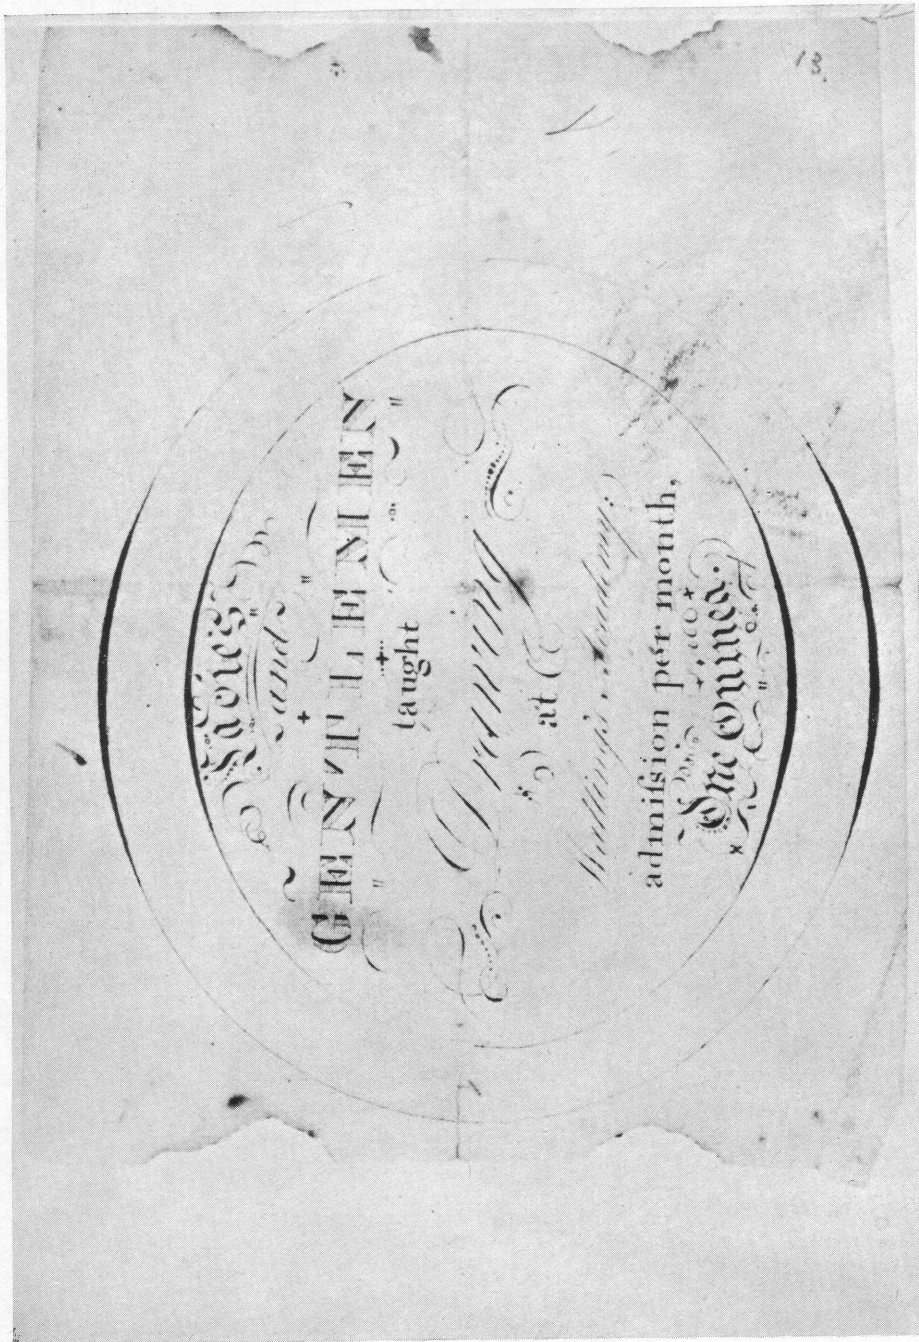 Ladies
and
GENTLEMEN
taught
Drawing
at
Watling's Academy:
admiſsion per month,
One Guinea.